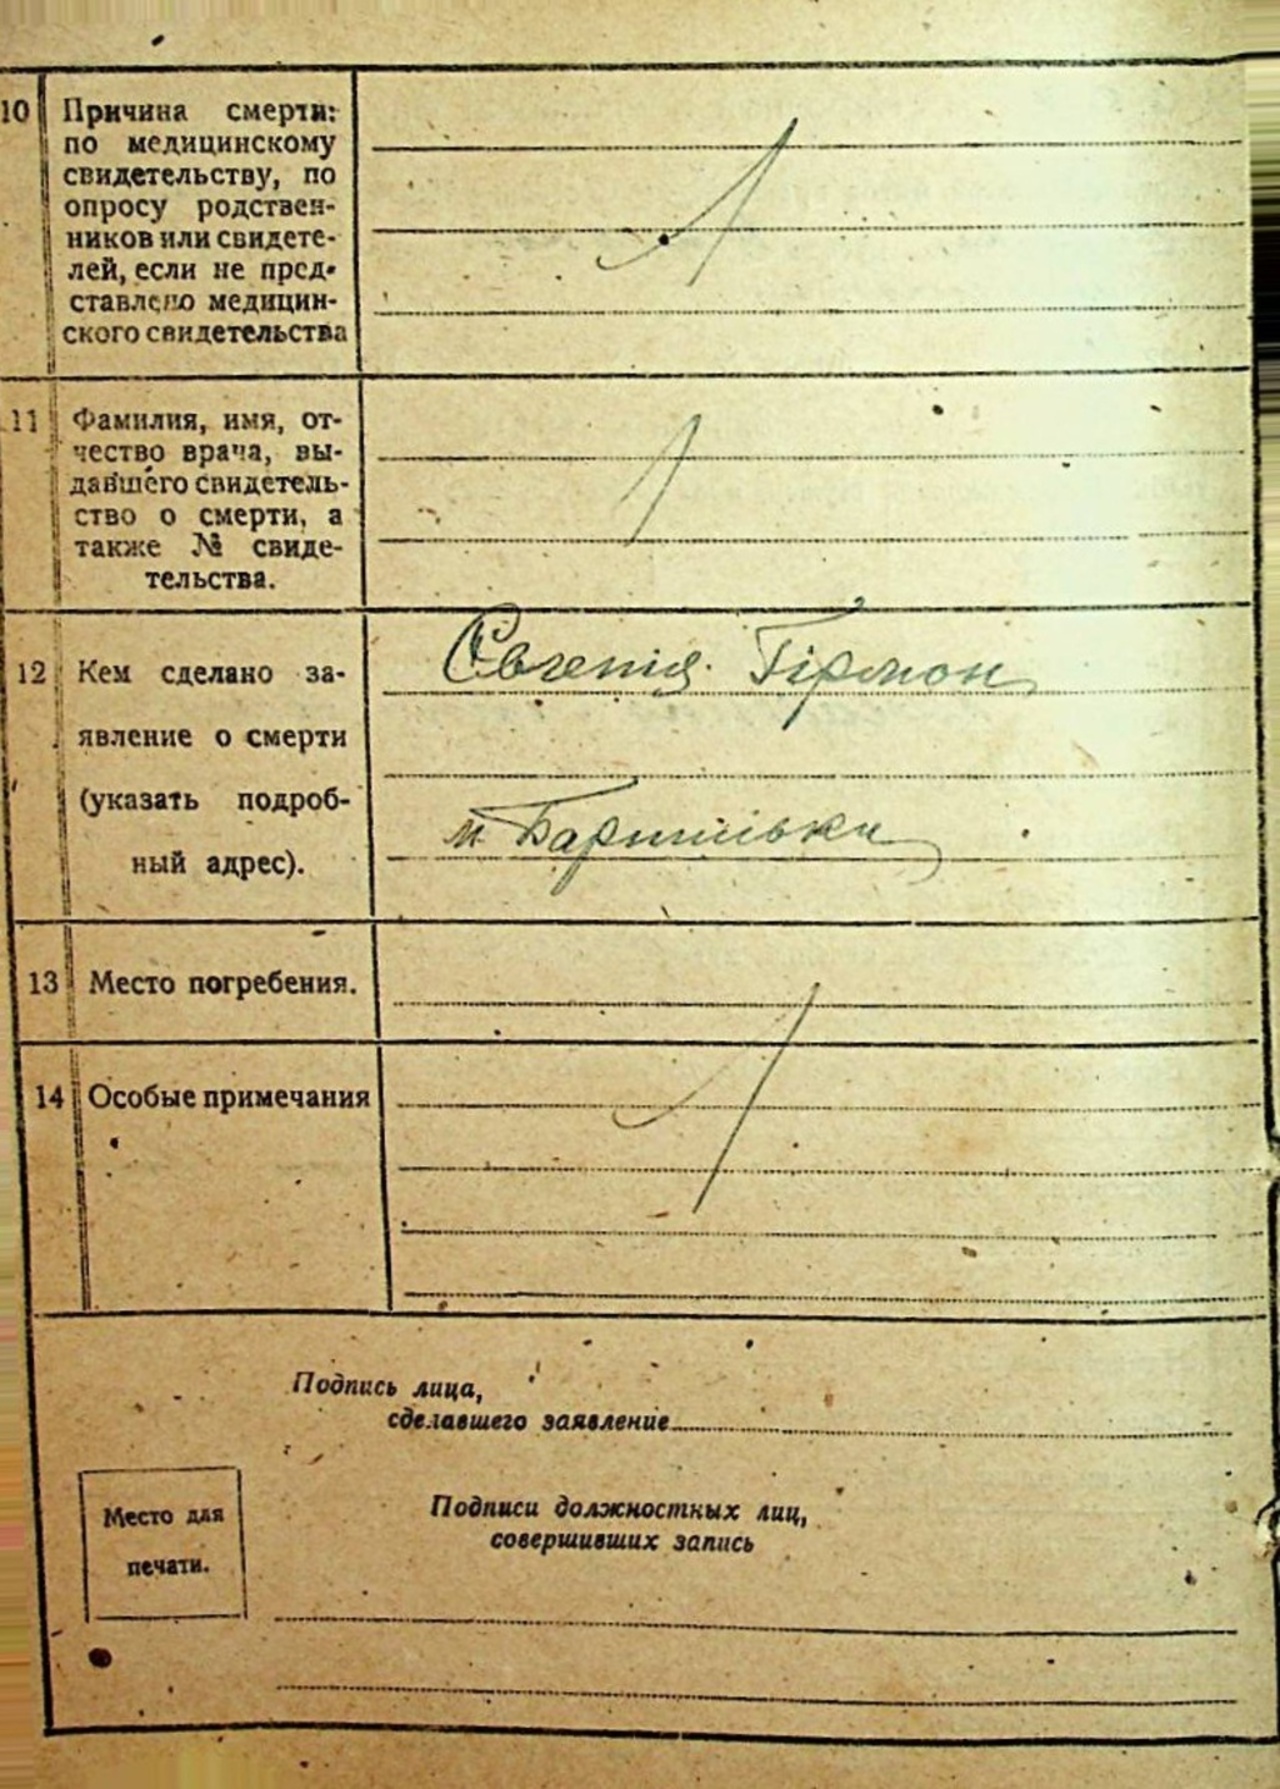 10 Причина смерти:
по медицинскому
свидетельству, по
опросу родствен-
ников или свидете-
лей, если не пред-
ставлено медицин-
ского свидетельства
11 Фамилия, имя, от-
чество врача, вы-
давшего свидетель-
ство о смерти, а
также № свиде-
тельства.
12 Кем сделано за-
явление о смерти
(указать подроб-
ный адрес).
Євгенія Гірмон
м Баришівка
13 Место погребения.
14 Особые примечания
Подпись лица,
сделавшего заявление
Подписи должностных лиц,
совершивших запись
Место для
печати.